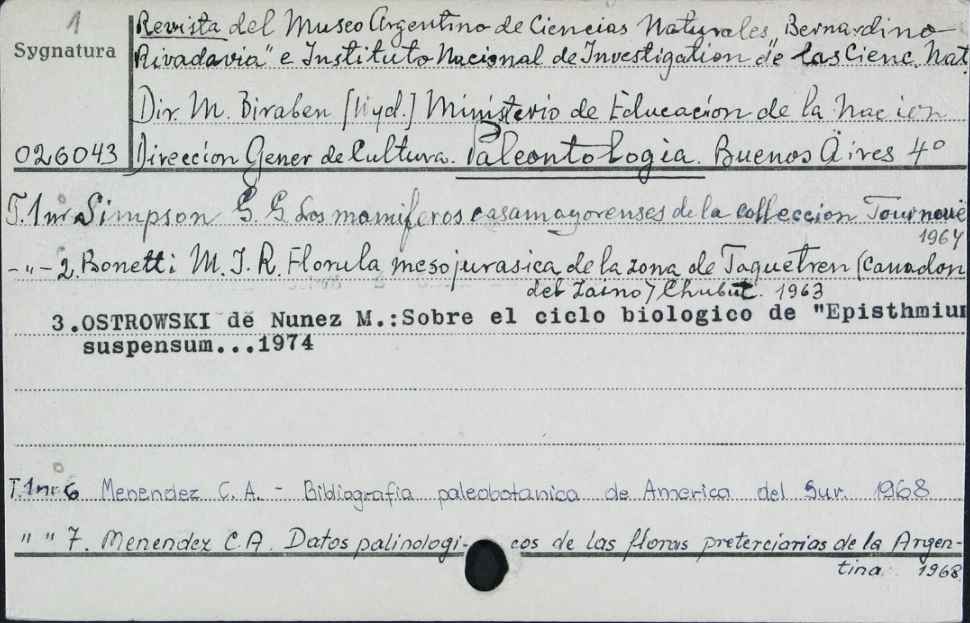 1
Sygnatura
026043
Revista del Museo Argentino de Ciencias Naturales „Bernardino
Rivadavia" e Instituto Nacional de Investigation de las Cienc. Nat.
Dir. M. Biraben [Wyd.] Ministerio de Educacion de la Nacion
Direccion Gener de Cultura. Paleontologia. Buenos Aires 4°
T.1 nr Simpson G. G. Los mamiferos casamayorenses de la colleccion Tournouë
1964
-"- 2. Bonetti M. I. R. Florula mesojurasica de la zona de Taquetren (Canadon
del Zaino) Chubut. 1963
3.OSTROWSKI de Nunez M.:Sobre el ciclo biologico de "Episthmium
suspensum...1974
T.1 nr 6 Menendez C. A. - Bibliografia paleobotanica de America del Sur. 1968
" " 7. Menendez C.A. Datos palinologi- cos de las floras preterciarias de la Argen-
tina 1968